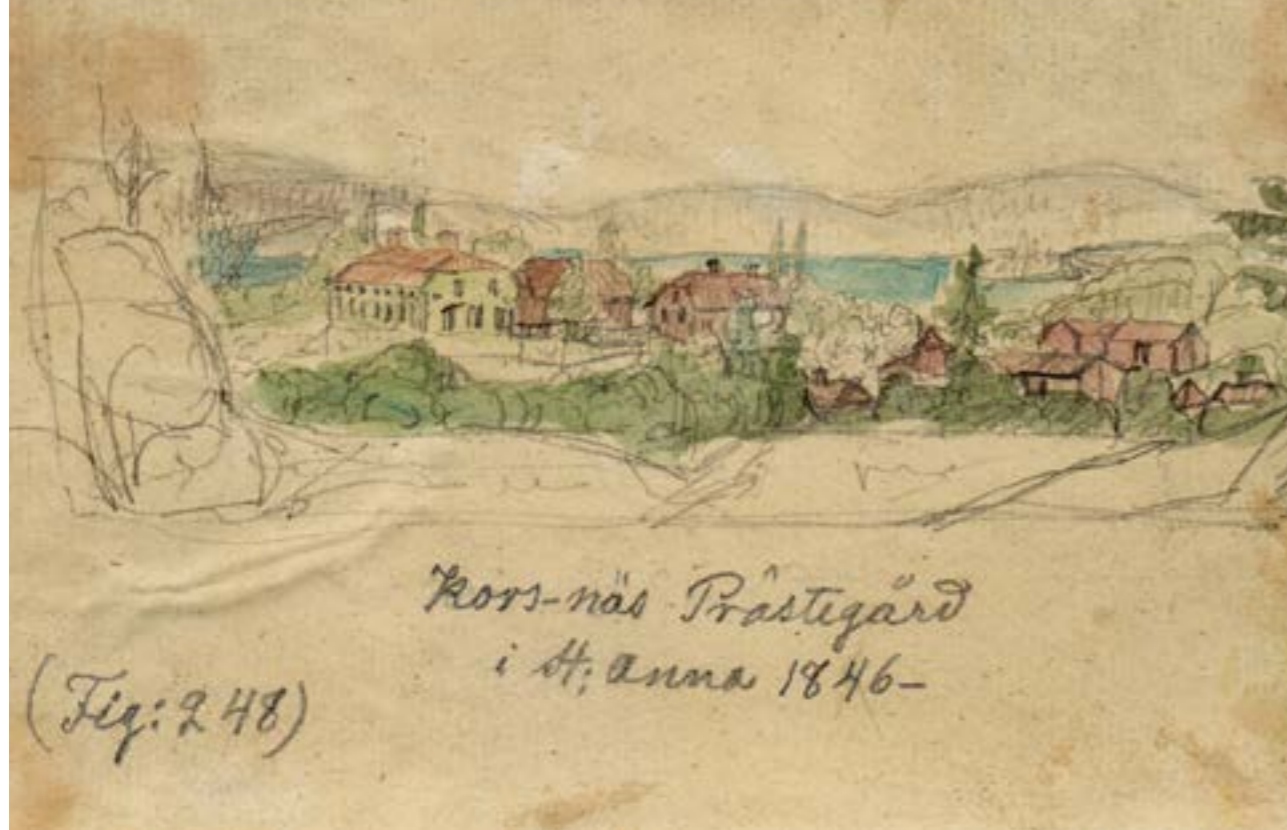 Kors-näs Prästegård
i St: Anna 1846-
(Fig: 248)